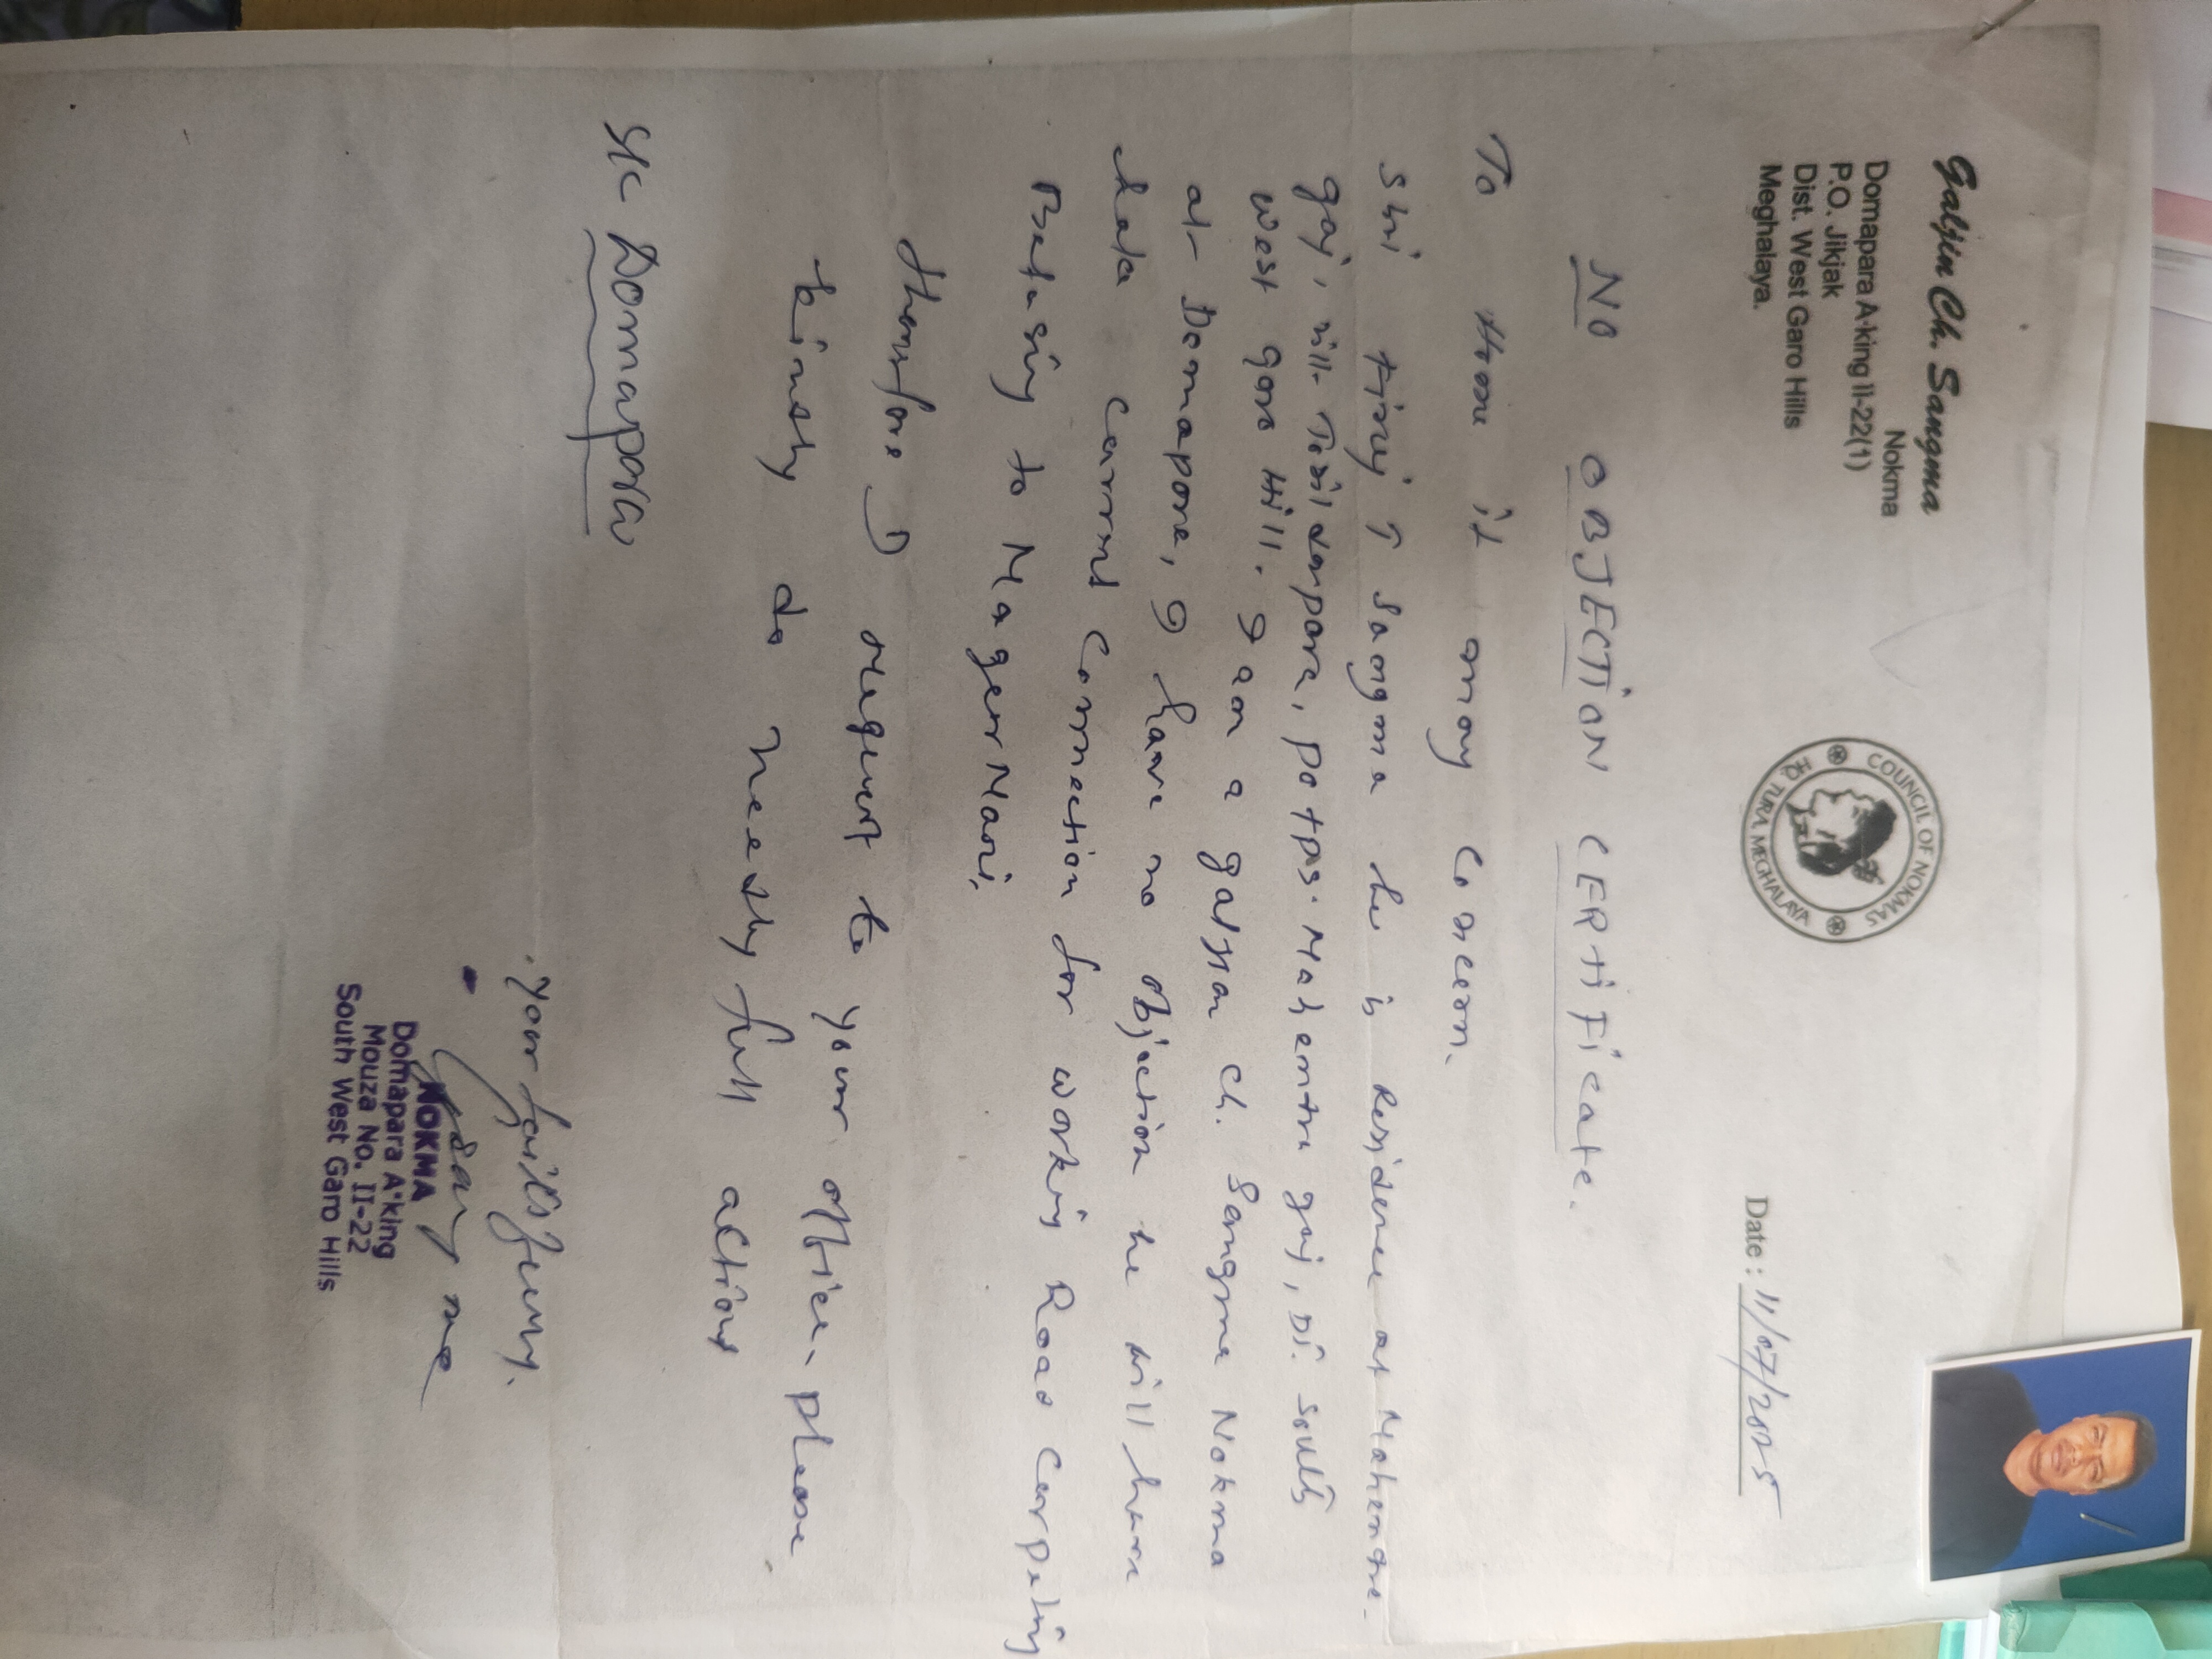 Galjin Ch. Sangma
Nokma
Domapara A·king II-22(1)
P.O. Jikjak
Dist. West Garo Hills
Meghalaya.
COUNCIL OF NOKMAS
HQ TURA MEGHALAYA
Date : 11/07/2025
NO OBJECTION CERtiFicate.
To home it may Concern.
Shri T Sangma he is Residence at Mahendra
gaj, vill- para, po+ps. Mahendra gaj, Di. South
West garo Hill. I am a galjin ch. Sangma Nokma
at Domapara, I have no objection he will have
current Connection for working Road Carpeting
Betasing to MagerMari,
Therefore I request to your office please
kindly do needly full action
S/C Domapara
your faithfully.
NOKMA
Domapara A·king
Mouza No. II-22
South West Garo Hills